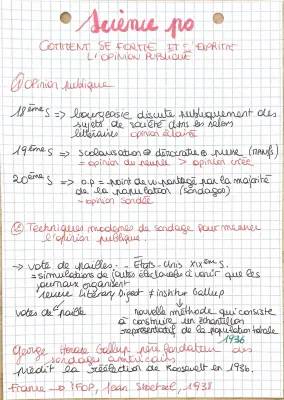 Science po
COMMENT SE FORME ET S'EXPRIME
L'OPINION PUBLIQUE
① Opinion publique
18ème s => bourgeoisie discute publiquement des
sujets de société dans les salons
littéraires opinion éclairée
19ème s => scolarisation démocratie presse
= opinion du peuple > opinion créée
20ème s => o.p = point de vue partagé par la majorité
de la population (sondages)
= opinion sondée
② Techniques modernes de sondage pour mesurer
l'opinion publique.
-> vote de pailles = États-Unis XIXème s.
= simulations de faites à venir que les
journaux organisent
revue Literary Digest ≠ institut Gallup
votes de paille nouvelle méthode qui consiste
à construire un échantillon
représentatif de la population totale
1936
George Horace Gallup père fondateur des
sondages américains
prédit la réélection de Roosevelt en 1936.
France -> IFOP, Jean Stoetzel, 1938